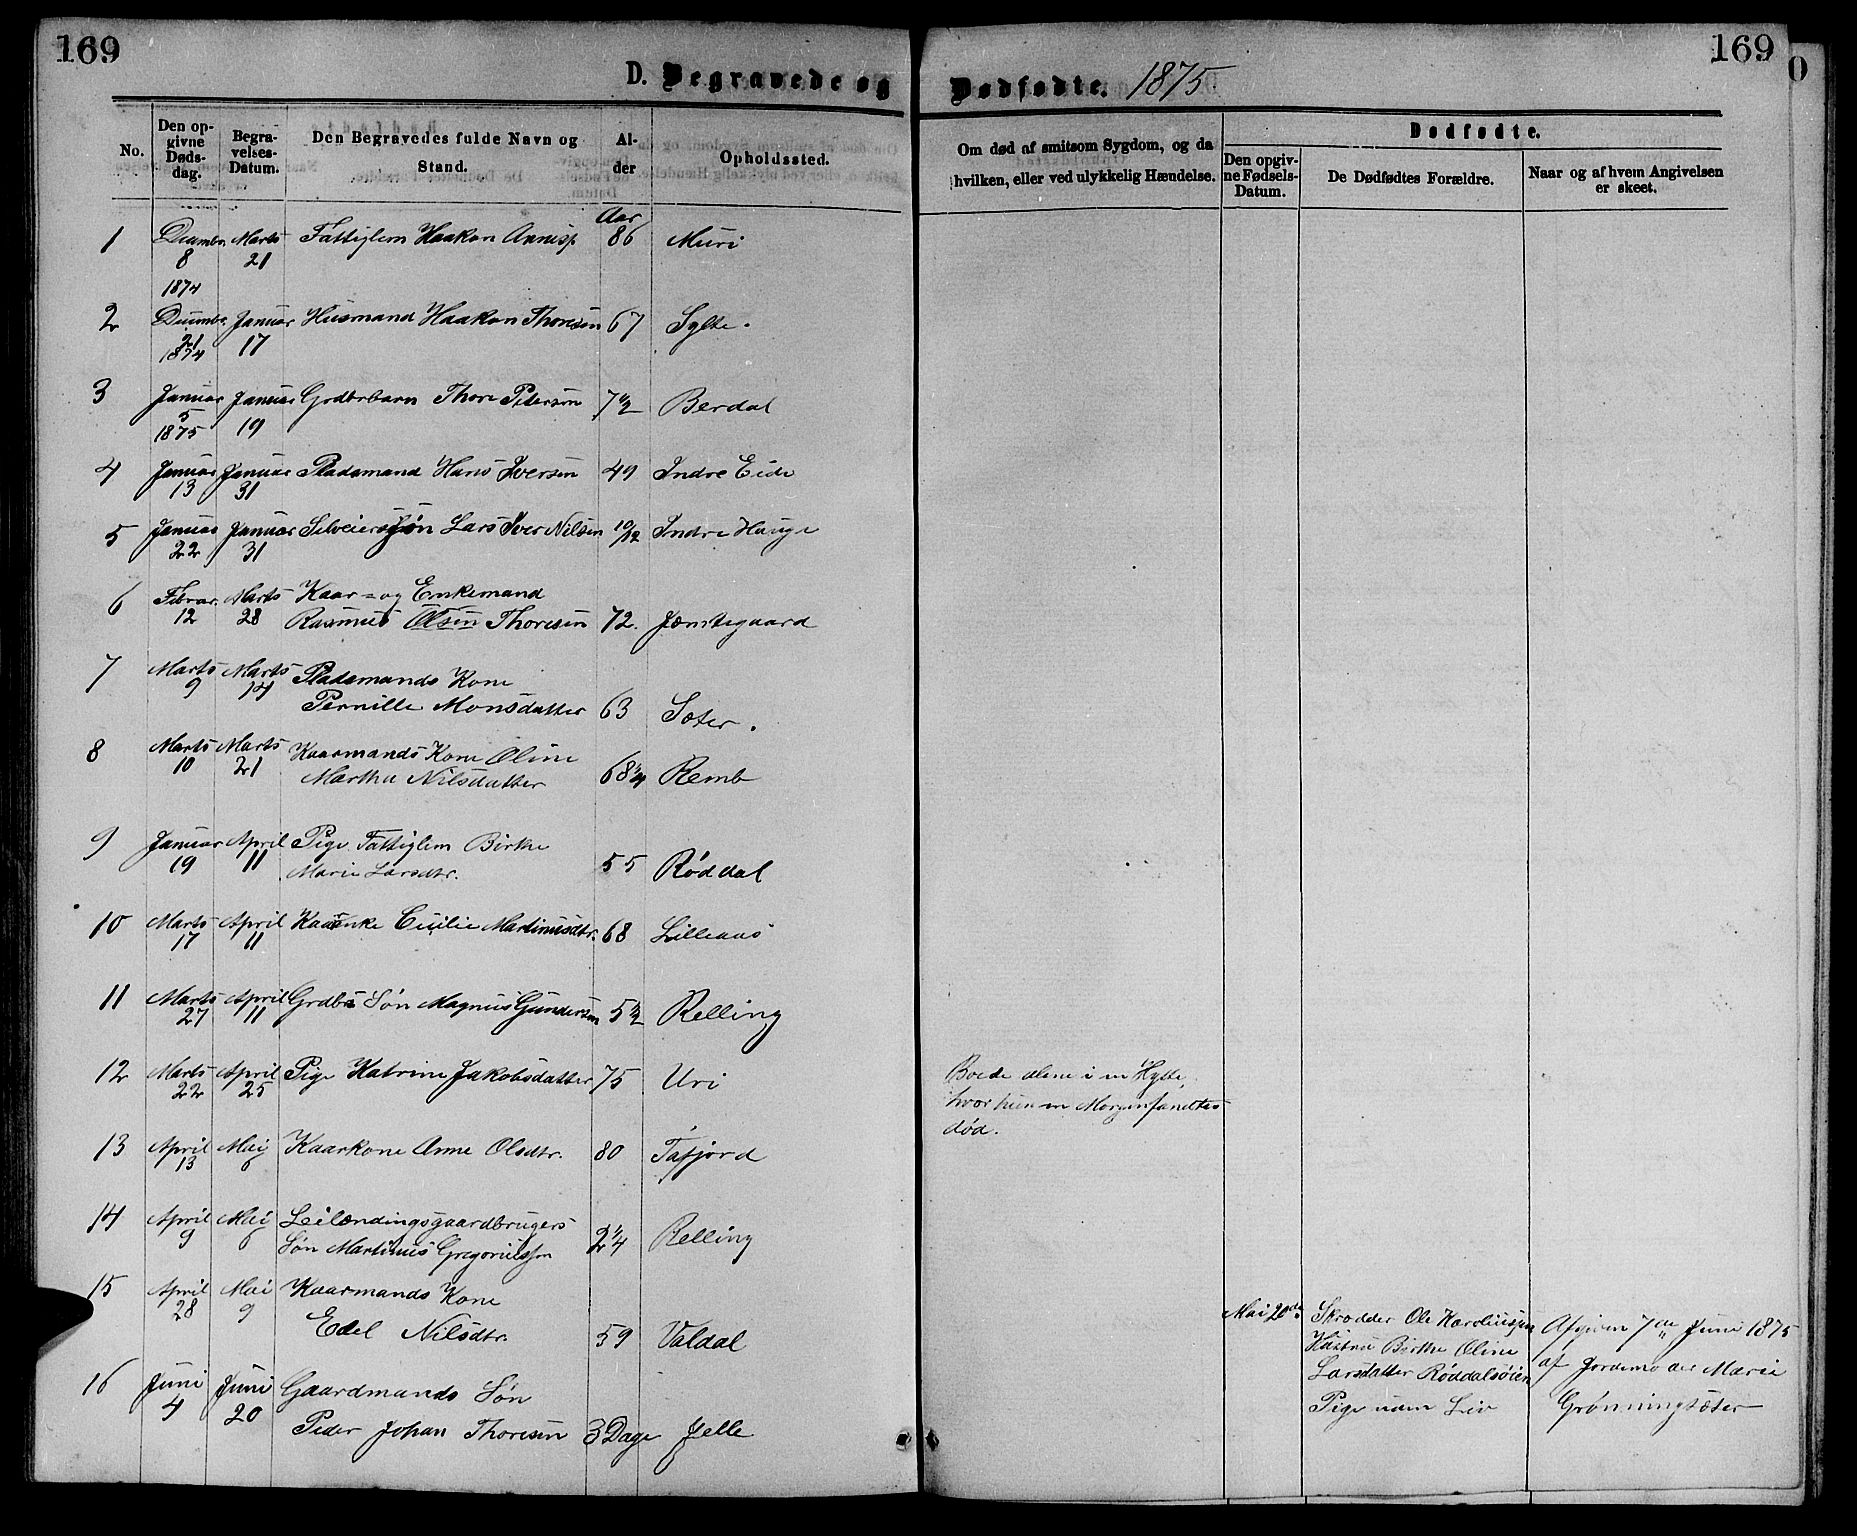 169
169
0
D. Begravede og Dødfødte. 1875.
No.
Den opgivne Dødsdag.
Begravelses-Datum.
Den Begravedes fulde Navn og Stand.
Alder
Opholdssted.
Om død af smitsom Sygdom, og da hvilken, eller ved ulykkelig Hændelse.
Dødfødte.
Den opgivne Fødsels-Datum.
De Dødfødtes Forældre.
Naar og af hvem Angivelsen er skeet.
Aar
1 Decembr. 8 1874 Marts 21 Fattiglem Haakon 86 Muri
2 Decembr. 21 1874 Januar 17 Husmand Haakon Thoresen 67 Sylte.
3 Januar 5 1875 Januar 19 Grdbrbarn Thore Petersen 7 1/2 Berdal
4 Januar 13 Januar 31 Pladsmand Hans Iversen 49 Indre Eide
5 Januar 22 Januar 31 Selveiers Søn Lars Iver Nilsen 10/12 Indre Hauge
6 Februar. 12 Marts 28 Kaar- og Enkemand
Rasmus Olsen Thoresen 72. Jemtegaard
7 Marts 9 Marts 14 Pladsmands Kone
Pernille Monsdatter 63 Sæter.
8 Marts 10 Marts 21 Kaarmands Kone Oline
Martha Nilsdatter 68 1/4 Remb
9 Januar 19 April 11 Pige Fattiglem Birthe
Marie Larsdtr. 55 Røddal
10 Marts 17 April 11 Kaarenke Cecilie Martinusdtr. 68 Lilleaas
11 Marts 27 April 11 Grdbrs Søn Magnus Gundersen 5 1/2 Relling
12 Marts 22 April 25 Pige Katrine Jakobsdatter 75 Uri
Boede alene i en Hytte,
hvor hun en Morgen fandtes
død.
13 April 13 Mai 6 Kaarkone Anne Olsdtr. 80 Tafjord
14 April 9 Mai 6 Leilændingsgaardbrugers
Søn Martinus Gregoriussen 2 1/4 Relling
15 April 28 Mai 9 Kaarmands Kone
Edel Nilsdtr. 59 Valdal
16 Juni 4 Juni 20 Gaardmands Søn
Peder Johan Thoresen 3 Dage Jelle
Mai 20de
Skrædder Ole Karoliussen
Hustru Birthe Oline
Larsdatter Røddalsøien
Pige uden Liv
Afgiven 7de Juni 1875
af Jordemoder Marie
Grønningsæter